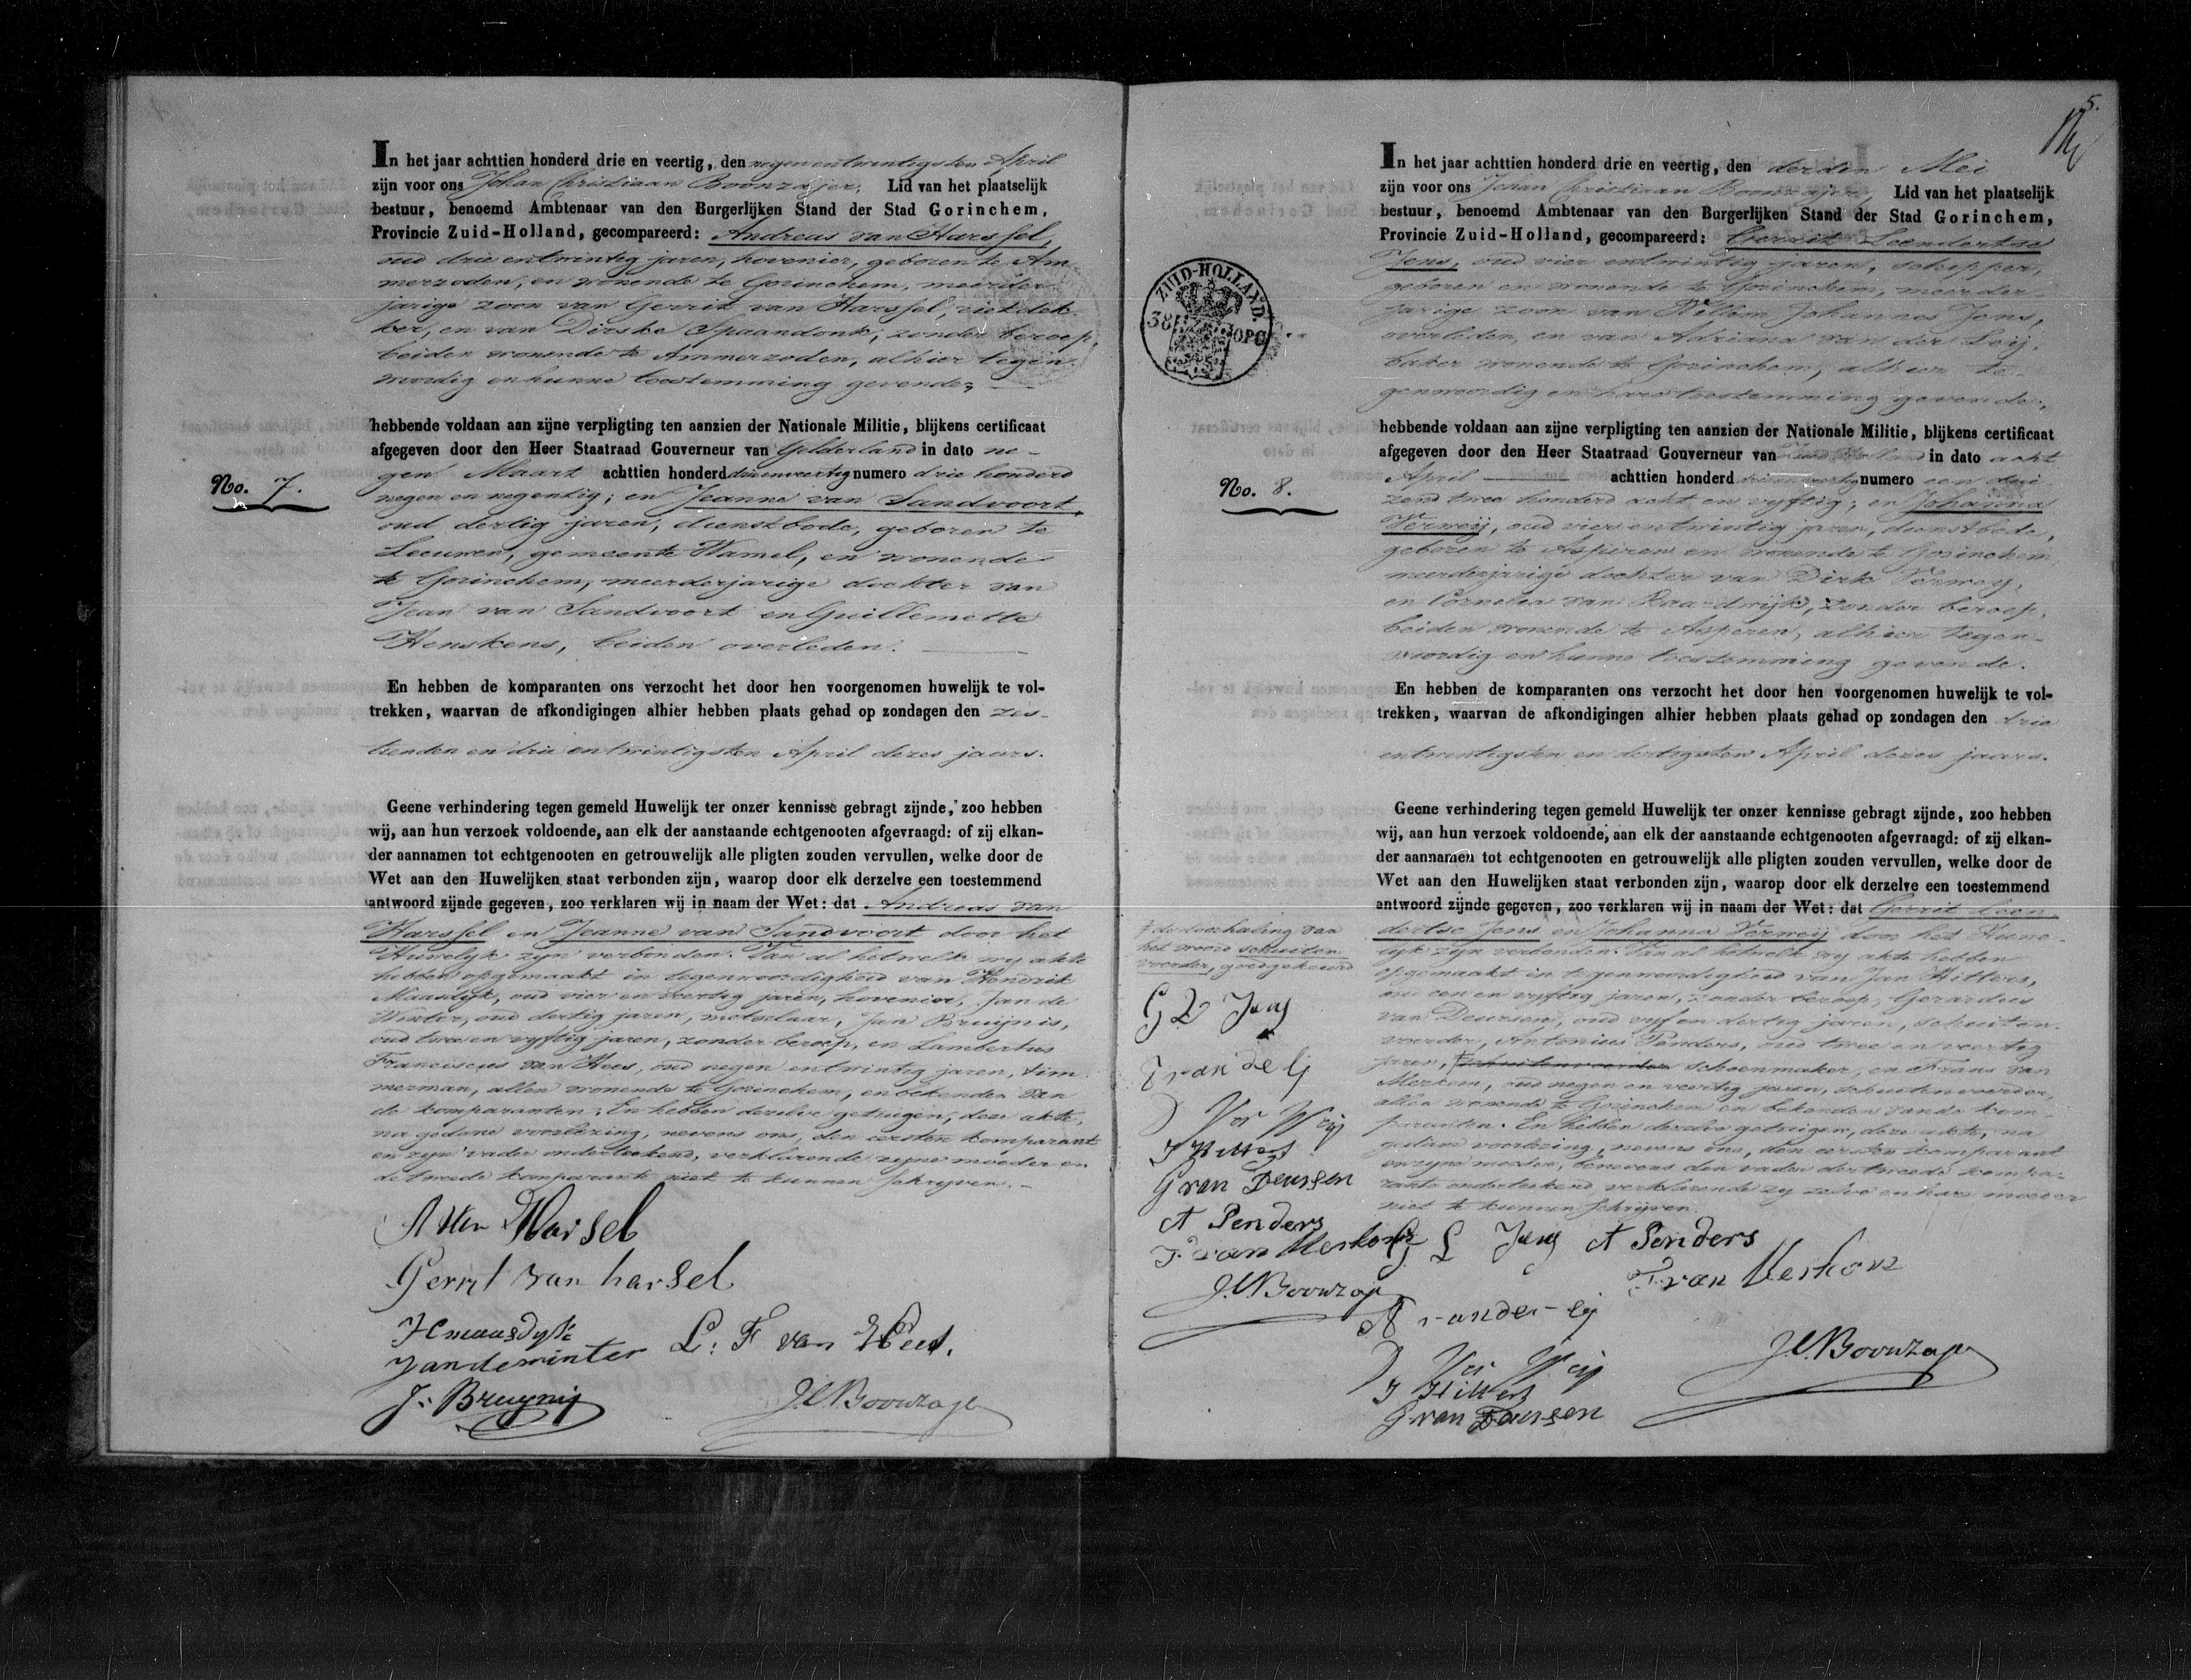 In het jaar achttien honderd drie en veertig, den negenentwintigsten April
zijn voor ons Johan Christiaan Boonzajer, Lid van het plaatselijk
bestuur, benoemd Ambtenaar van den Burgerlijken Stand der Stad Gorinchem,
Provincie Zuid-Holland, gecompareerd: Andreas van Harssel,
oud drie entwintig jaren, hovenier, geboren te Am-
merzoden, en wonende te Gorinchem, meerder-
jarige zoon van Gerrit van Harssel, rietdek-
ker, en van Dirske Spaandonk, zonder beroep,
beiden wonende te Ammerzoden, alhier tegen-
woordig en hunne toestemming gevende;
hebbende voldaan aan zijne verpligting ten aanzien der Nationale Militie, blijkens certificaat
afgegeven door den Heer Staatraad Gouverneur van Gelderland in dato ne-
gen Maart achttien honderd drieenveertig numero drie honderd
No. 7.
negen en negentig; en Jeanne van Sandvoort,
oud dertig jaren, dienstbode, geboren te
Leeuwen, gemeente Wamel, en wonende
te Gorinchem, meerderjarige dochter van
Jean van Sandvoort en Guillemette
Henskens, beiden overleden.
En hebben de komparanten ons verzocht het door hen voorgenomen huwelijk te vol-
trekken, waarvan de afkondigingen alhier hebben plaats gehad op zondagen den zes-
tienden en drie entwintigsten April dezes jaars.
Geene verhindering tegen gemeld Huwelijk ter onzer kennisse gebragt zijnde, zoo hebben
wij, aan hun verzoek voldoende, aan elk der aanstaande echtgenooten afgevraagd: of zij elkan-
der aannamen tot echtgenooten en getrouwelijk alle pligten zouden vervullen, welke door de
Wet aan den Huwelijken staat verbonden zijn, waarop door elk derzelve een toestemmend
antwoord zijnde gegeven, zoo verklaren wij in naam der Wet: dat Andreas van
Harssel en Jeanne van Sandvoort door het
Huwelyk zyn verbonden. Van al hetwelk wy akte
hebben opgemaakt in tegenwoordigheid van Hendrik
Maasdyk, oud vier en veertig jaren, hovenier, Jan de
Winter, oud dertig jaren, metselaar, Jan Bruynis,
oud twee en vyftig jaren, zonder beroep, en Lambertus
Franciscus van Hees, oud negen entwintig jaren, tim-
merman, allen wonende te Gorinchem, en bekenden van
de komparanten. En hebben dezelve getuigen, deze akte,
na gedane voorlezing, nevens ons, den eersten komparant
en zyn vader onderteekend, verklarende zyne moeder en
de tweede komparante niet te kunnen schryven.
A van Harsel
Gerrit van harsel
H maasdyk
Jan de winter L. F van Hees.
J. Bruynis JCBoonzajer
5.
In het jaar achttien honderd drie en veertig, den derden Mei
zijn voor ons Johan Christiaan Boonzajer, Lid van het plaatselijk
bestuur, benoemd Ambtenaar van den Burgerlijken Stand der Stad Gorinchem,
Provincie Zuid-Holland, gecompareerd: Gerrit Leendertse
Jens, oud vier entwintig jaren, schipper,
geboren en wonende te Gorinchem, meerder-
jarige zoon van Willem Johannes Jens,
overleden, en van Adriana van der Leij,
baker wonende te Gorinchem, alhier te-
genwoordig en hare toestemming gevende,
ZUID-HOLLAND.
38 OPC
hebbende voldaan aan zijne verpligting ten aanzien der Nationale Militie, blijkens certificaat
afgegeven door den Heer Staatraad Gouverneur van Zuid Holland in dato acht
April achttien honderd drieenveertig numero een dui-
No. 8.
zend twee honderd acht en vyftig; en Johanna
Verweij, oud vier entwintig jaren, dienstbode,
geboren te Asperen en wonende te Gorinchem
meerderjarige dochter van Dirk Verwey,
en Cornelia van Baardwijk, zonder beroep,
beiden wonende te Asperen, alhier tegen-
woordig en hunne toestemming gevende.
En hebben de komparanten ons verzocht het door hen voorgenomen huwelijk te vol-
trekken, waarvan de afkondigingen alhier hebben plaats gehad op zondagen den drie
entwintigsten en dertigsten April dezes jaars.
Geene verhindering tegen gemeld Huwelijk ter onzer kennisse gebragt zijnde, zoo hebben
wij, aan hun verzoek voldoende, aan elk der aanstaande echtgenooten afgevraagd: of zij elkan-
der aannamen tot echtgenooten en getrouwelijk alle pligten zouden vervullen, welke door de
Wet aan den Huwelijken staat verbonden zijn, waarop door elk derzelve een toestemmend
antwoord zijnde gegeven, zoo verklaren wij in naam der Wet: dat Gerrit Leen-
dertse Jens en Johanna Verweij door het Huwe-
lyk zyn verbonden. Van al hetwelk wy akte hebben
opgemaakt in tegenwoordigheid van Jan Hitters,
oud een en vyftig jaren, zonder beroep, Gerardus
van Deursen, oud vyf en dertig jaren, schuiten-
voerder, Antonius Penders, oud twee en veertig
jaren, schuitenvoerder schoenmaker, en Frans van
Merkom, oud negen en veertig jaren, schuitenvoerder,
allen wonende te Gorinchem en bekenden van de kom-
paranten. En hebben dezelve getuigen, deze akte, na
gedane voorlezing, nevens ons, den eersten komparant
en zyne moeder, benevens den vader der tweede kompa-
rante onderteekend, verklarende zy zelve en hare moeder
niet te kunnen schryven.
de doorhaling van
het woord schuiten-
voerder, goedgekeurd
G L Jens
D Ver Weij
J Hitters
G van Deursen
A Penders
F. van Merkom
JCBoonzajer
G L Jens A Penders
F van Merkom
A vander leij
D Ver Weij
J Hitters
G van Deursen
JCBoonzajer